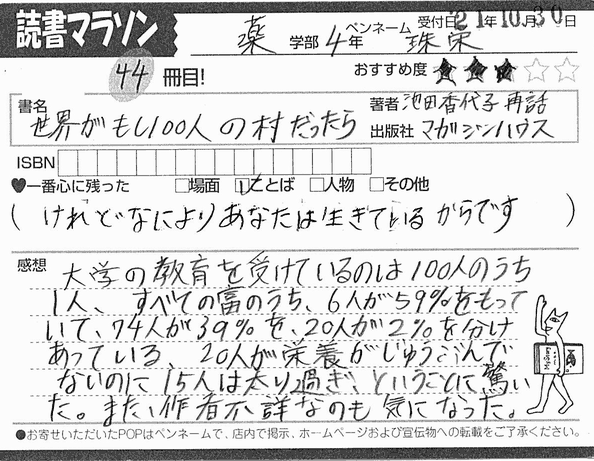 読書マラソン
薬 学部 4年 ペンネーム 珠栄 受付日 21年10月30日
44 冊目! おすすめ度 ★★★☆☆
書名 世界がもし100人の村だったら 著者 池田香代子 再話
出版社 マガジンハウス
ISBN
♥一番心に残った □場面 □ことば □人物 □その他
( けれどなによりあなたは生きているからです )
感想 大学の教育を受けているのは100人のうち
1人、すべての富のうち、6人が59%をもって
いて、74人が39%を、20人が2%を分け
あっている、20人が栄養がじゅうぶんで
ないのに15人は太り過ぎ、ということに驚い
た。また、作者不詳なのも気になった。
●お寄せいただいたPOPはペンネームで、店内で掲示、ホームページおよび宣伝物への転載をご了承ください。